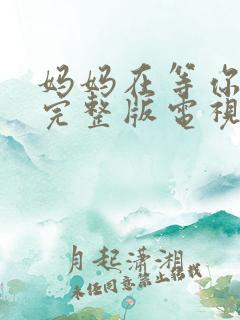 妈妈在等你
完整版電視
月起潇湘
未经同意禁止转载